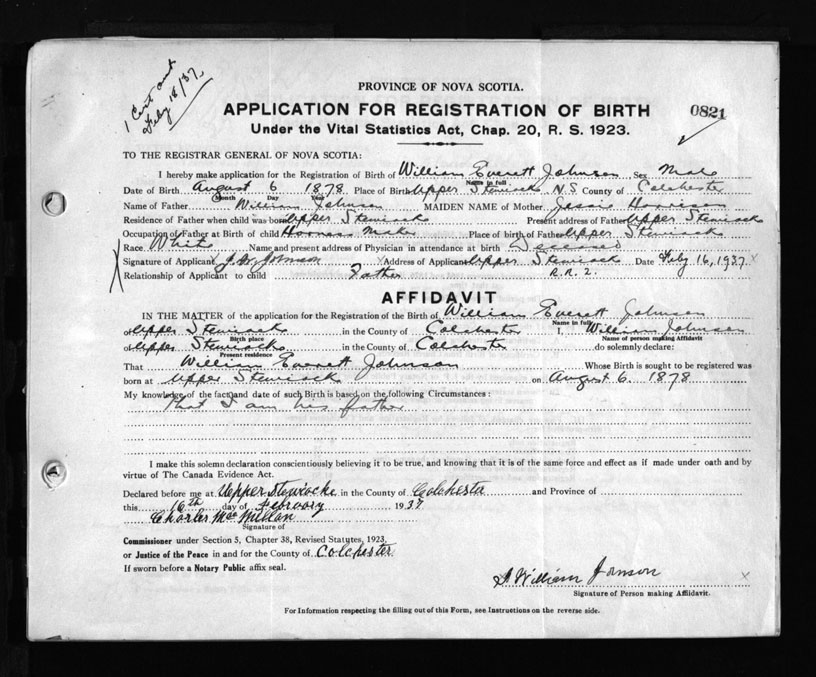 1 Cert out
Feby 18/37.
PROVINCE OF NOVA SCOTIA.
APPLICATION FOR REGISTRATION OF BIRTH
0821
Under the Vital Statistics Act, Chap. 20, R. S. 1923.
TO THE REGISTRAR GENERAL OF NOVA SCOTIA:
I hereby make application for the Registration of Birth of William Everett Johnson Sex Male
Name in full
Date of Birth August 6 1878 Place of Birth Upper Stewiacke N.S County of Colchester
Month Day Year
Name of Father William Johnson MAIDEN NAME of Mother Jessie Harrison
Residence of Father when child was born Upper Stewiacke Present address of Father Upper Stewiacke
Occupation of Father at Birth of child Harness Maker Place of birth of Father Upper Stewiacke
Race White Name and present address of Physician in attendance at birth Deceased
Signature of Applicant J. W. Johnson X Address of Applicant Upper Stewiacke Date Feby 16, 1937 X
R.R. 2.
Relationship of Applicant to child Father
AFFIDAVIT
IN THE MATTER of the application for the Registration of the Birth of William Everett Johnson
Name in full
of Upper Stewiacke in the County of Colchester I, William Johnson
Birth place Name of person making Affidavit
of Upper Stewiacke in the County of Colchester do solemnly declare:
Present residence
That William Everett Johnson Whose Birth is sought to be registered was
born at Upper Stewiacke on August 6. 1878
My knowledge of the fact and date of such Birth is based on the following Circumstances:
that I am his father
I make this solemn declaration conscientiously believing it to be true, and knowing that it is of the same force and effect as if made under oath and by
virtue of The Canada Evidence Act.
Declared before me at Upper Stewiacke in the County of Colchester and Province of
this 16th day of February 1937
Charles MacMillan
Signature of
Commissioner under Section 5, Chapter 38, Revised Statutes, 1923,
or Justice of the Peace in and for the County of Colchester
If sworn before a Notary Public affix seal.
William Jonson X
Signature of Person making Affidavit.
For Information respecting the filling out of this Form, see Instructions on the reverse side.